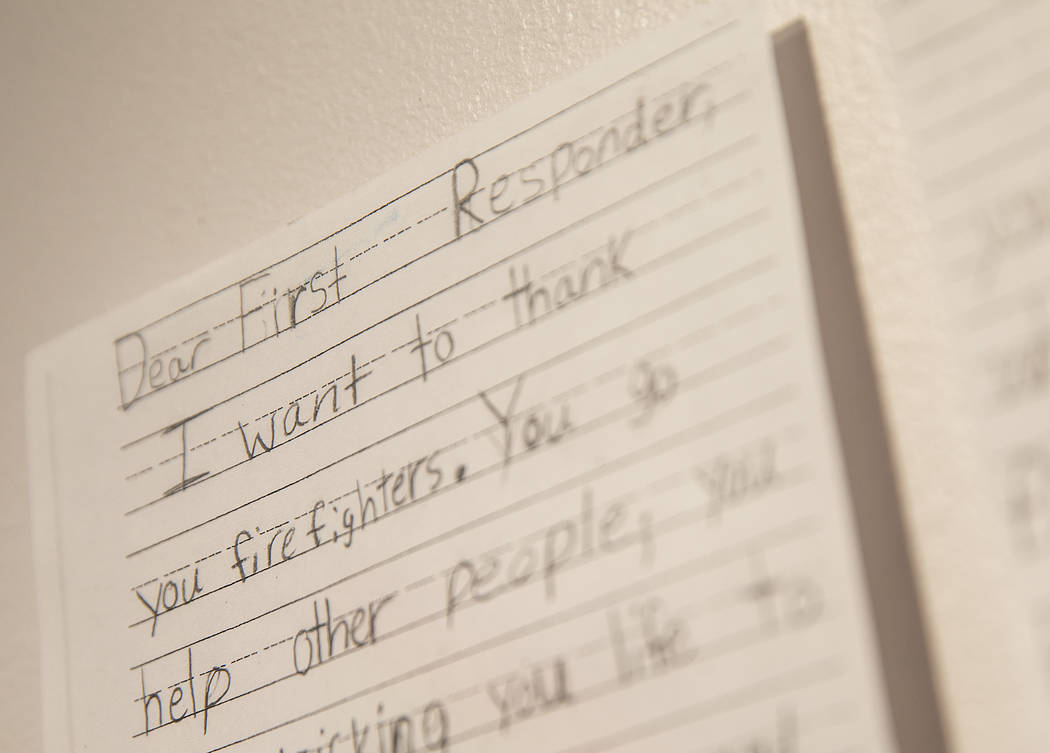 Dear First Responder,
I want to thank
you firefighters. You go
help other people, you
you life to